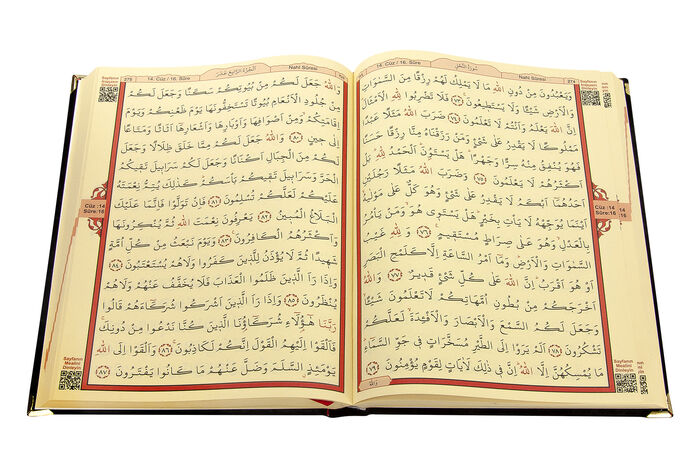 274
Nahl Sûresi
سورة النحل
وَيَعْبُدُونَ مِنْ دُونِ اللّٰهِ مَا لَا يَمْلِكُ لَهُمْ رِزْقًا مِنَ السَّمٰوَاتِ
وَالْاَرْضِ شَيْـًٔا وَلَا يَسْتَطِيعُونَ ﴿٧٣﴾ فَلَا تَضْرِبُوا لِلّٰهِ الْاَمْثَالَ
اِنَّ اللّٰهَ يَعْلَمُ وَاَنْتُمْ لَا تَعْلَمُونَ ﴿٧٤﴾ ضَرَبَ اللّٰهُ مَثَلًا عَبْدًا
مَمْلُوكًا لَا يَقْدِرُ عَلٰى شَيْءٍ وَمَنْ رَزَقْنَاهُ مِنَّا رِزْقًا حَسَنًا
فَهُوَ يُنْفِقُ مِنْهُ سِرًّا وَجَهْرًا هَلْ يَسْتَوُنَ الْحَمْدُ لِلّٰهِ بَلْ
اَكْثَرُهُمْ لَا يَعْلَمُونَ ﴿٧٥﴾ وَضَرَبَ اللّٰهُ مَثَلًا رَجُلَيْنِ
اَحَدُهُمَا اَبْكَمُ لَا يَقْدِرُ عَلٰى شَيْءٍ وَهُوَ كَلٌّ عَلٰى مَوْلٰيهُ
اَيْنَمَا يُوَجِّهْهُ لَا يَأْتِ بِخَيْرٍ هَلْ يَسْتَوِي هُوَ وَمَنْ يَأْمُرُ
بِالْعَدْلِ وَهُوَ عَلٰى صِرَاطٍ مُسْتَقِيمٍ ﴿٧٦﴾ وَلِلّٰهِ غَيْبُ
السَّمٰوَاتِ وَالْاَرْضِ وَمَا اَمْرُ السَّاعَةِ اِلَّا كَلَمْحِ الْبَصَرِ
اَوْ هُوَ اَقْرَبُ اِنَّ اللّٰهَ عَلٰى كُلِّ شَيْءٍ قَدِيرٌ ﴿٧٧﴾ وَاللّٰهُ
اَخْرَجَكُمْ مِنْ بُطُونِ اُمَّهَاتِكُمْ لَا تَعْلَمُونَ شَيْـًٔا
وَجَعَلَ لَكُمُ السَّمْعَ وَالْاَبْصَارَ وَالْاَفْـِٔدَةَ لَعَلَّكُمْ
تَشْكُرُونَ ﴿٧٨﴾ اَلَمْ يَرَوْا اِلَى الطَّيْرِ مُسَخَّرَاتٍ فِي جَوِّ السَّمَاءِ
مَا يُمْسِكُهُنَّ اِلَّا اللّٰهُ اِنَّ فِي ذٰلِكَ لَاٰيَاتٍ لِقَوْمٍ يُؤْمِنُونَ ﴿٧٩﴾
وَاللّٰهُ
Cüz :14
Sûre:16
Sayfanın
Mealini
Dinleyin
275
14. Cüz / 16. Sûre
الجزء الرابع عشر
Nahl Sûresi
وَاللّٰهُ جَعَلَ لَكُمْ مِنْ بُيُوتِكُمْ سَكَنًا وَجَعَلَ لَكُمْ
مِنْ جُلُودِ الْاَنْعَامِ بُيُوتًا تَسْتَخِفُّونَهَا يَوْمَ ظَعْنِكُمْ وَيَوْمَ
اِقَامَتِكُمْ وَمِنْ اَصْوَافِهَا وَاَوْبَارِهَا وَاَشْعَارِهَا اَثَاثًا وَمَتَاعًا
اِلٰى حِينٍ ﴿٨٠﴾ وَاللّٰهُ جَعَلَ لَكُمْ مِمَّا خَلَقَ ظِلَالًا وَجَعَلَ
لَكُمْ مِنَ الْجِبَالِ اَكْنَانًا وَجَعَلَ لَكُمْ سَرَابِيلَ تَقِيكُمُ
الْحَرَّ وَسَرَابِيلَ تَقِيكُمْ بَأْسَكُمْ كَذٰلِكَ يُتِمُّ نِعْمَتَهُ
عَلَيْكُمْ لَعَلَّكُمْ تُسْلِمُونَ ﴿٨١﴾ فَاِنْ تَوَلَّوْا فَاِنَّمَا عَلَيْكَ
الْبَلَاغُ الْمُبِينُ ﴿٨٢﴾ يَعْرِفُونَ نِعْمَتَ اللّٰهِ ثُمَّ يُنْكِرُونَهَا
وَاَكْثَرُهُمُ الْكَافِرُونَ ﴿٨٣﴾ وَيَوْمَ نَبْعَثُ مِنْ كُلِّ اُمَّةٍ
شَهِيدًا ثُمَّ لَا يُؤْذَنُ لِلَّذِينَ كَفَرُوا وَلَا هُمْ يُسْتَعْتَبُونَ ﴿٨٤﴾
وَاِذَا رَاَ الَّذِينَ ظَلَمُوا الْعَذَابَ فَلَا يُخَفَّفُ عَنْهُمْ وَلَا هُمْ
يُنْظَرُونَ ﴿٨٥﴾ وَاِذَا رَاَ الَّذِينَ اَشْرَكُوا شُرَكَاءَهُمْ قَالُوا
رَبَّنَا هٰؤُلَاءِ شُرَكَاؤُنَا الَّذِينَ كُنَّا نَدْعُوا مِنْ دُونِكَ
فَاَلْقَوْا اِلَيْهِمُ الْقَوْلَ اِنَّكُمْ لَكَاذِبُونَ ﴿٨٦﴾ وَاَلْقَوْا اِلَى اللّٰهِ
يَوْمَئِذٍ السَّلَمَ وَضَلَّ عَنْهُمْ مَا كَانُوا يَفْتَرُونَ ﴿٨٧﴾
Cüz :14
Sûre:16
Sayfanın
Mealini
Dinleyin